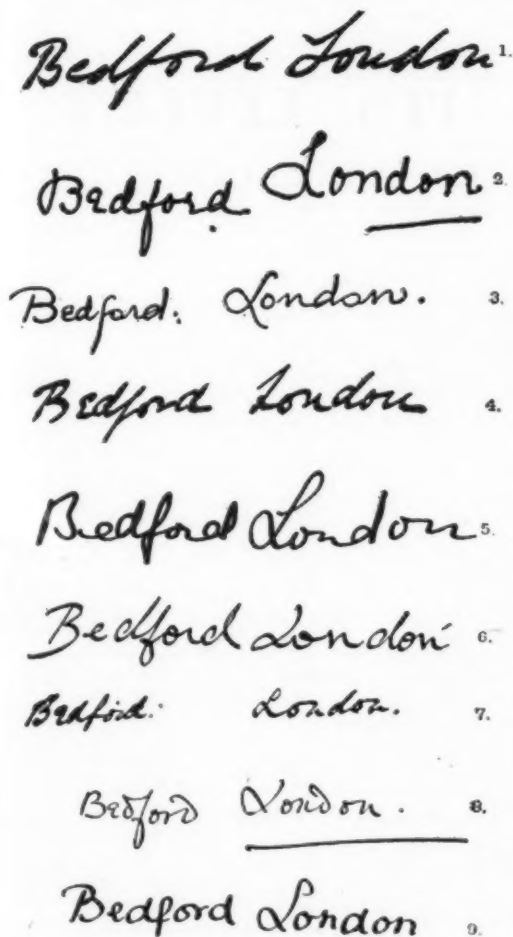 Bedford London 1.
Bedford London 2.
Bedford. London. 3.
Bedford London 4.
Bedford London 5.
Bedford London 6.
Bedford. London. 7.
Bedford London. 8.
Bedford London 9.